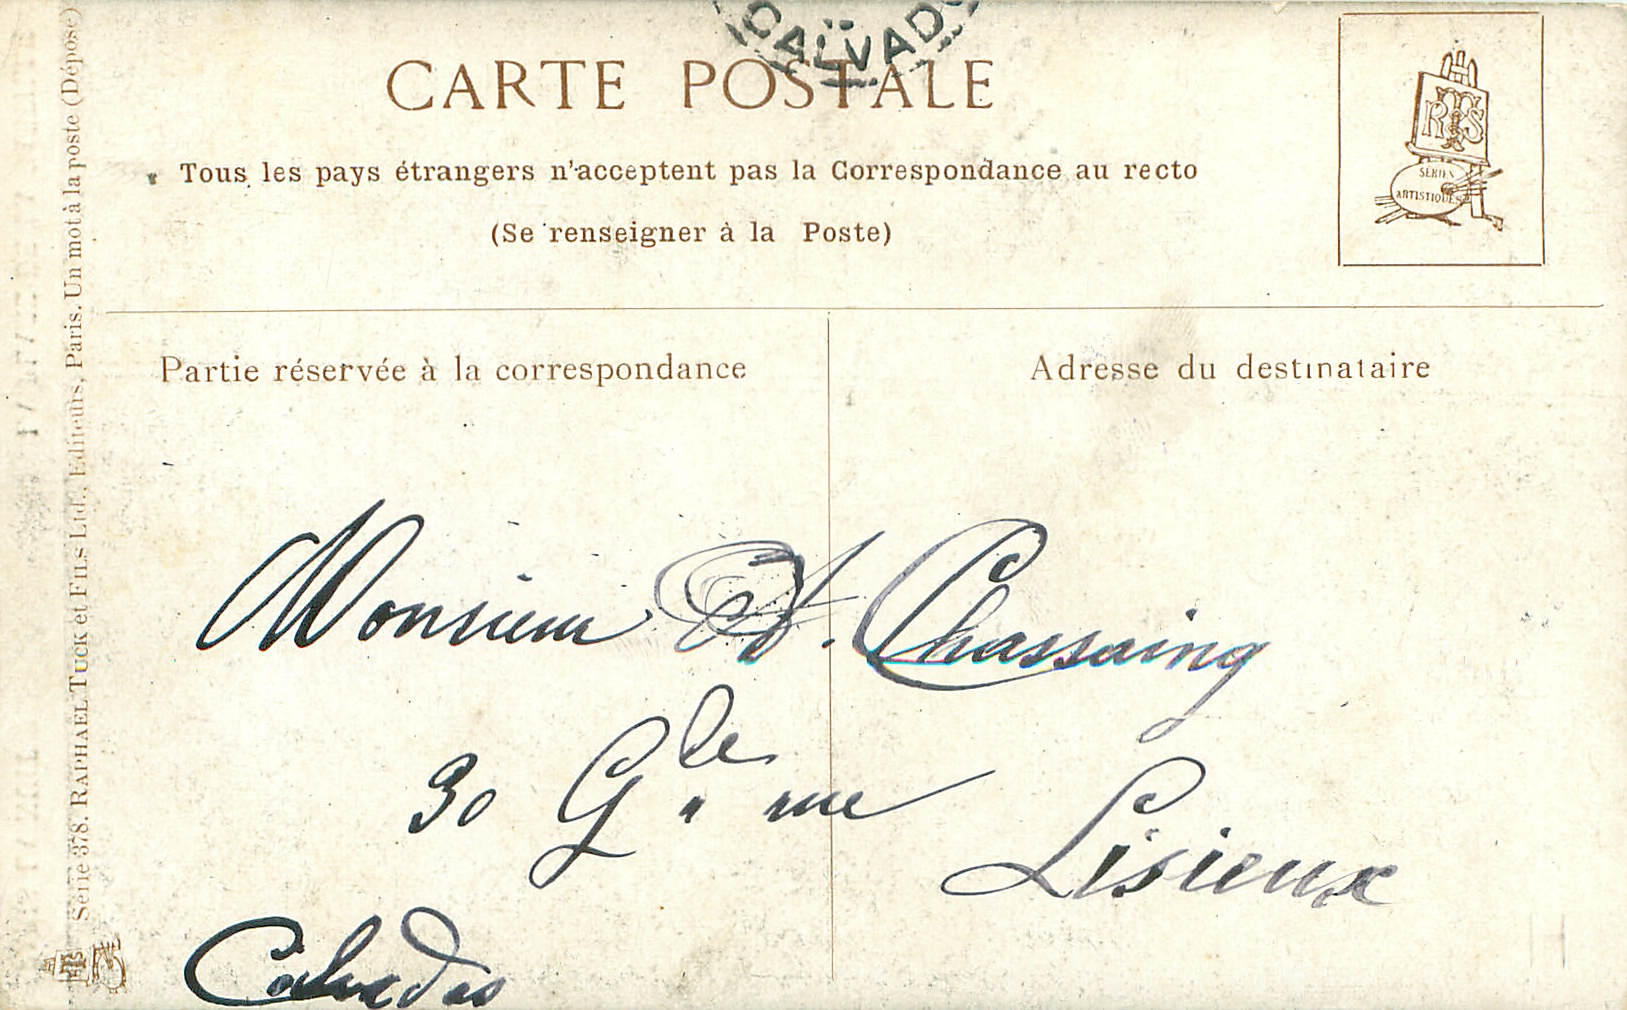 CALVADOS
CARTE POSTALE
Tous les pays étrangers n'acceptent pas la Correspondance au recto
(Se renseigner à la Poste)
RTS
SÉRIES
ARTISTIQUES
Partie réservée à la correspondance
Adresse du destinataire
Monsieur A. Chassaing
30 Gde rue
Lisieux
Calvados
Série 378. RAPHAEL TUCK et FILS Ltd., Editeurs, Paris. Un mot à la poste (Déposé)